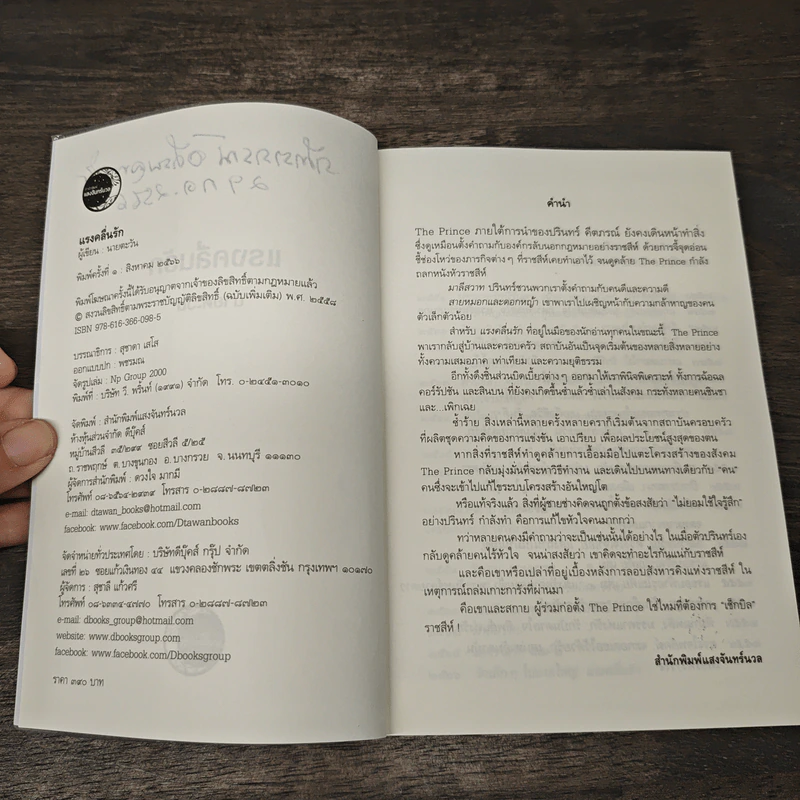 แสงจันทร์นวล
แรงคลื่นรัก
ผู้เขียน : นายตะวัน
พิมพ์ครั้งที่ ๑ : สิงหาคม ๒๕๖๖
พิมพ์โฆษณาครั้งนี้ได้รับอนุญาตจากเจ้าของลิขสิทธิ์ตามกฎหมายแล้ว
© สงวนลิขสิทธิ์ตามพระราชบัญญัติลิขสิทธิ์ (ฉบับเพิ่มเติม) พ.ศ. ๒๕๕๘
ISBN 978-616-366-098-5
บรรณาธิการ : สุชาดา เสโส
ออกแบบปก : พชรมณ
จัดรูปเล่ม : Np Group 2000
พิมพ์ที่ : บริษัท วี. พริ้นท์ (๑๙๙๑) จำกัด โทร. ๐-๒๔๕๑-๓๐๑๐
จัดพิมพ์ : สำนักพิมพ์แสงจันทร์นวล
ห้างหุ้นส่วนจำกัด ดีบุ๊คส์
หมู่บ้านสิวลี ๓๕/๒๙๙ ซอยสิวลี ๕/๒๕
ถ.ราชพฤกษ์ ต.บางขุนกอง อ.บางกรวย จ.นนทบุรี ๑๑๑๓๐
ผู้จัดการสำนักพิมพ์ : ดวงใจ มากมี
โทรศัพท์ ๐๘-๖๕๗๘-๒๙๓๙ โทรสาร ๐-๒๘๘๗-๘๗๒๓
e-mail: dtawan_books@hotmail.com
facebook: www.facebook.com/Dtawanbooks
จัดจำหน่ายทั่วประเทศโดย : บริษัทดีบุ๊คส์ กรุ๊ป จำกัด
เลขที่ ๒๖ ซอยแก้วเงินทอง ๔๔ แขวงคลองชักพระ เขตตลิ่งชัน กรุงเทพฯ ๑๐๑๗๐
ผู้จัดการ : สุชาลี แก้วศรี
โทรศัพท์ ๐๘-๖๓๓๔-๔๗๗๐ โทรสาร ๐-๒๘๘๗-๘๗๒๓
e-mail: dbooks_group@hotmail.com
website: www.dbooksgroup.com
facebook: www.facebook.com/Dbooksgroup
ราคา ๓๙๐ บาท
คำนำ
The Prince ภายใต้การนำของปรินทร์ คีตภรณ์ ยังคงเดินหน้าทำสิ่ง
ซึ่งดูเหมือนตั้งคำถามกับองค์กรลับนอกกฎหมายอย่างราชสีห์ ด้วยการจี้จุดอ่อน
ชี้ช่องโหว่ของภารกิจต่างๆ ที่ราชสีห์เคยทำเอาไว้ จนดูคล้าย The Prince กำลัง
ถลกหนังหัวราชสีห์
มาลีสวาท ปรินทร์ชวนพวกเราตั้งคำถามกับคนดีและความดี
สายหมอกและดอกหญ้า เขาพาเราไปเผชิญหน้ากับความกล้าหาญของคน
ตัวเล็กตัวน้อย
สำหรับ แรงคลื่นรัก ที่อยู่ในมือของนักอ่านทุกคนในขณะนี้ The Prince
พาเรากลับสู่บ้านและครอบครัว สถาบันอันเป็นจุดเริ่มต้นของหลายสิ่งหลายอย่าง
ทั้งความเสมอภาค เท่าเทียม และความยุติธรรม
อีกทั้งดึงชิ้นส่วนบิดเบี้ยวต่างๆ ออกมาให้เราพินิจพิเคราะห์ ทั้งการฉ้อฉล
คอร์รัปชัน และสินบน ที่ยังคงเกิดขึ้นซ้ำแล้วซ้ำเล่าในสังคม กระทั่งหลายคนชินชา
และ...เพิกเฉย
ซ้ำร้าย สิ่งเหล่านี้หลายครั้งหลายคราก็เริ่มต้นจากสถาบันครอบครัว
ที่ผลิตชุดความคิดของการแข่งขัน เอาเปรียบ เพื่อผลประโยชน์สูงสุดของตน
หากสิ่งที่ราชสีห์ทำดูคล้ายการเอื้อมมือไปแตะโครงสร้างของสังคม
The Prince กลับมุ่งมั่นที่จะหาวิธีทำงาน และเดินไปบนหนทางเดียวกับ “คน”
คนซึ่งจะเข้าไปแก้ไขระบบโครงสร้างอันใหญ่โต
หรือแท้จริงแล้ว สิ่งที่ผู้ชายช่างคิดจนถูกตั้งข้อสงสัยว่า “ไม่ยอมใช้ใจรู้สึก”
อย่างปรินทร์ กำลังทำ คือการแก้ไขหัวใจคนมากกว่า
ทว่าหลายคนคงมีคำถามว่าจะเป็นเช่นนั้นได้อย่างไร ในเมื่อตัวปรินทร์เอง
กลับดูคล้ายคนไร้หัวใจ จนน่าสงสัยว่า เขาคิดจะทำอะไรกันแน่กับราชสีห์
และคือเขาหรือเปล่าที่อยู่เบื้องหลังการลอบสังหารคิงแห่งราชสีห์ ใน
เหตุการณ์ถล่มเกาะการังที่ผ่านมา
คือเขาและสกาย ผู้ร่วมก่อตั้ง The Prince ใช่ไหมที่ต้องการ “เช็กบิล”
ราชสีห์ !
สำนักพิมพ์แสงจันทร์นวล